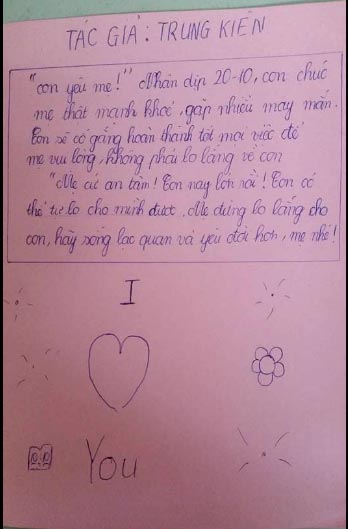 TÁC GIẢ: TRUNG KIÊN
"con yêu mẹ!" Nhân dịp 20-10, con chúc
mẹ thật mạnh khoẻ, gặp nhiều may mắn.
Con sẽ cố gắng hoàn thành tốt mọi việc để
mẹ vui lòng, không phải lo lắng về con
"Mẹ cứ an tâm! Con nay lớn rồi! Con có
thể tự lo cho mình được. Mẹ đừng lo lắng cho
con, hãy sống lạc quan và yêu đời hơn, mẹ nhé!
I
You